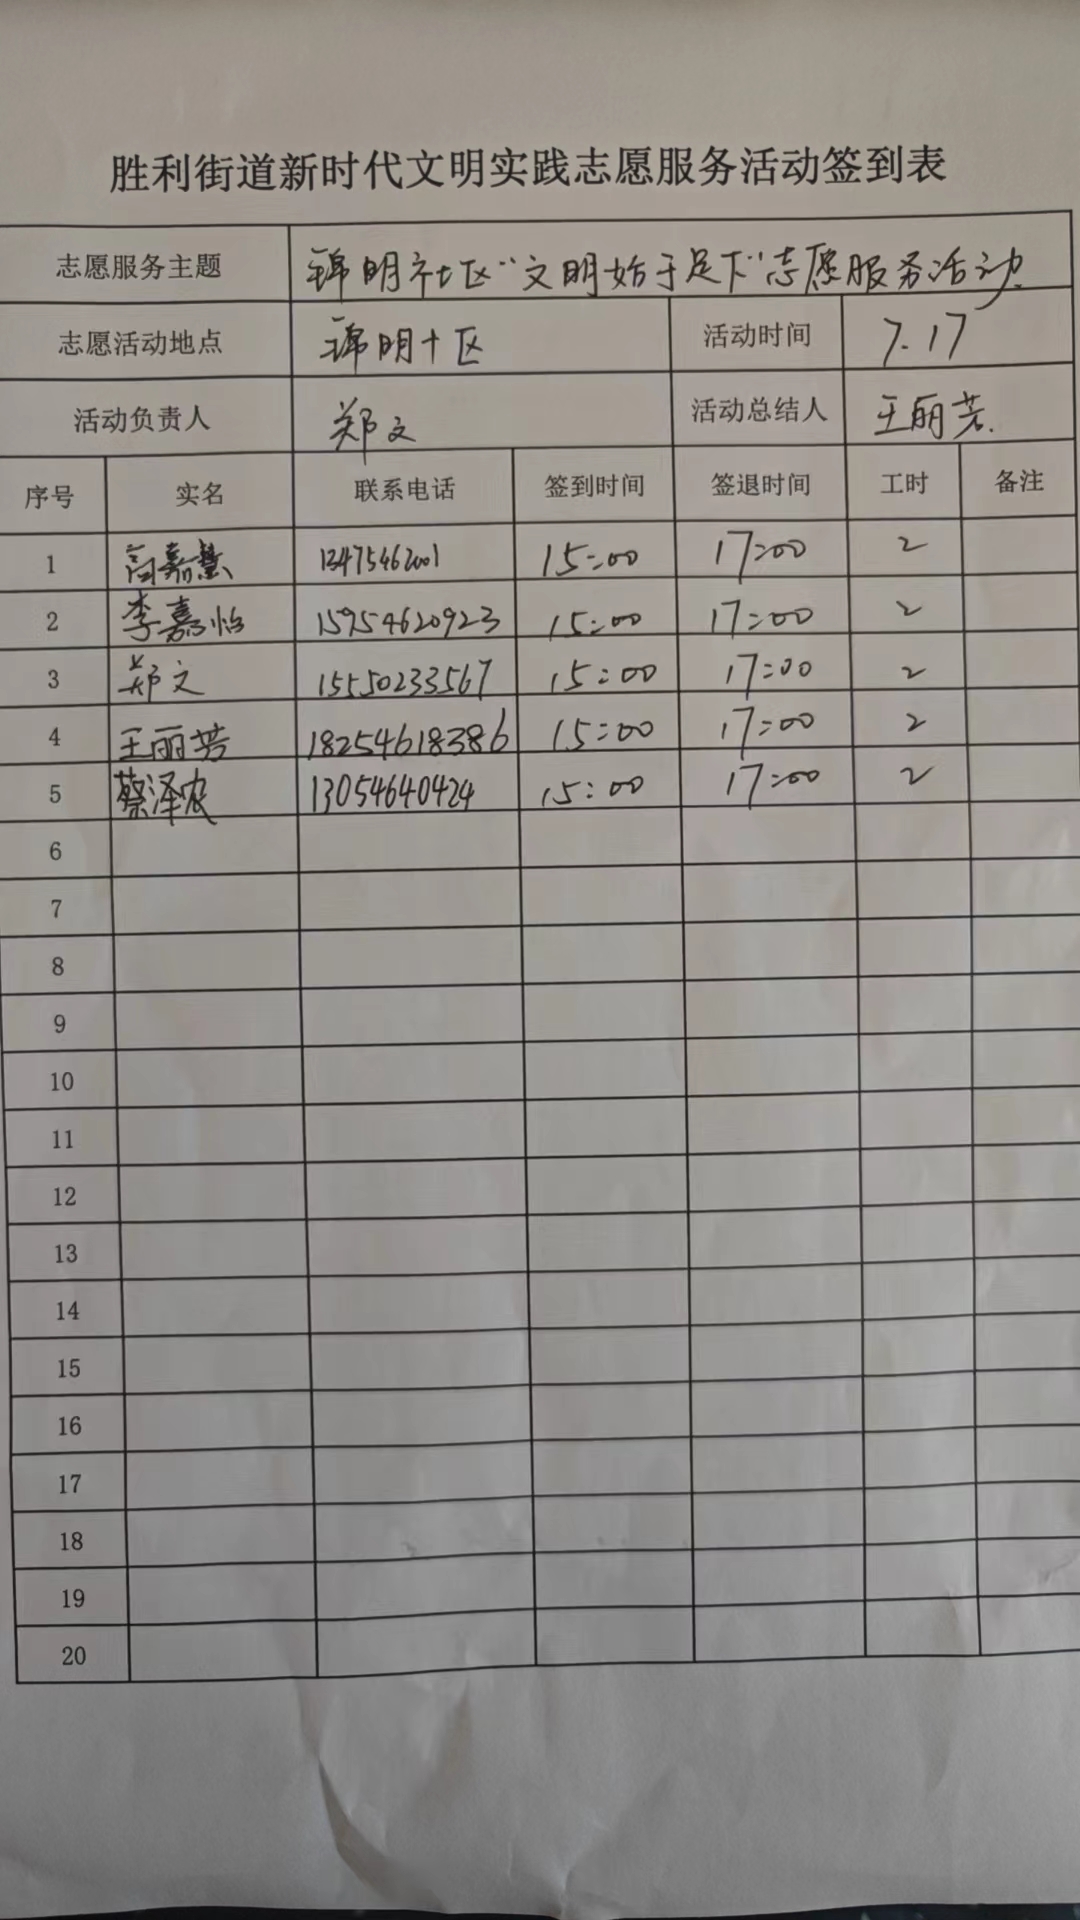 胜利街道新时代文明实践志愿服务活动签到表
志愿服务主题 锦明社区“文明始于足下”志愿服务活动
志愿活动地点 锦明十区 活动时间 7.17
活动负责人 郑文 活动总结人 王丽芳
序号 实名 联系电话 签到时间 签退时间 工时 备注
1 高嘉慧 13475462001 15:00 17:00 2
2 李嘉怡 15954620923 15:00 17:00 2
3 郑文 15550233567 15:00 17:00 2
4 王丽芳 18254618386 15:00 17:00 2
5 蔡泽农 13054640424 15:00 17:00 2
6
7
8
9
10
11
12
13
14
15
16
17
18
19
20